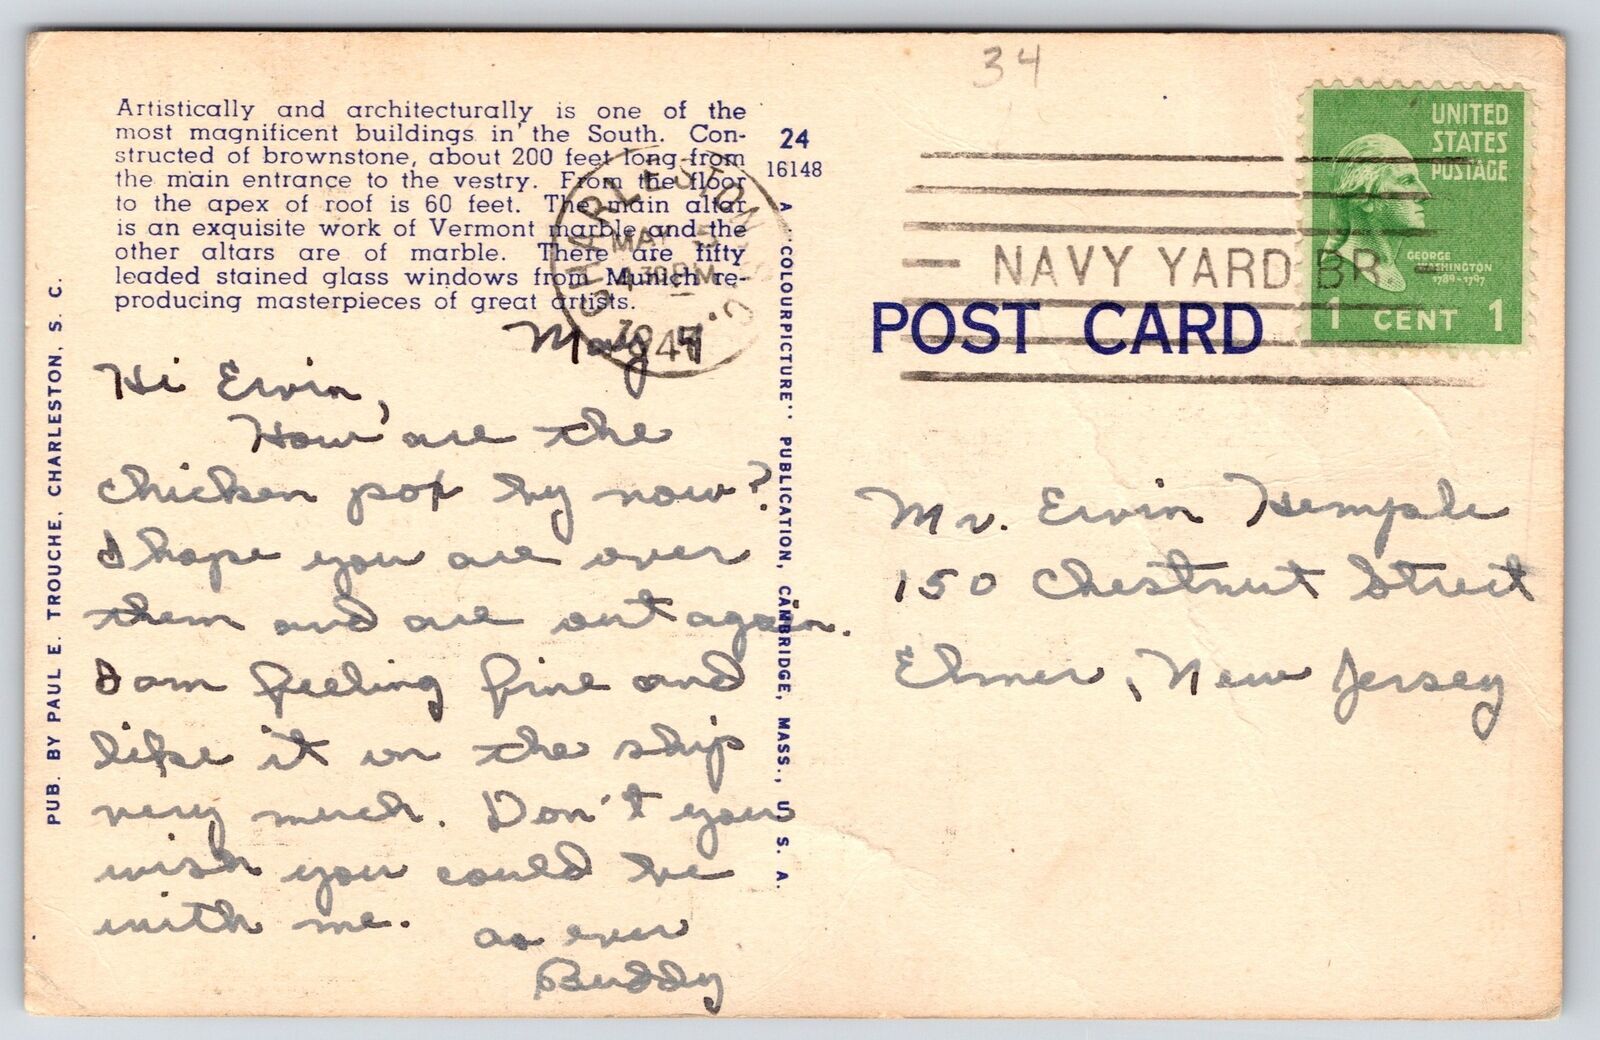 34
Artistically and architecturally is one of the
most magnificent buildings in the South. Con-
structed of brownstone, about 200 feet long from
the main entrance to the vestry. From the floor
to the apex of roof is 60 feet. The main altar
is an exquisite work of Vermont marble and the
other altars are of marble. There are fifty
leaded stained glass windows from Munich re-
producing masterpieces of great artists.
24
16148
CHARLESTON
S. C.
MAY 5
4 30 PM
NAVY YARD BR.
UNITED
STATES
POSTAGE
GEORGE
WASHINGTON
1789-1797
1 CENT 1
POST CARD
PUB. BY PAUL E. TROUCHE, CHARLESTON, S. C.
A "COLOURPICTURE" PUBLICATION, CAMBRIDGE, MASS., U. S. A.
May
Hi Ervin,
How are the
chicken pox by now?
I hope you are over
them and are out again.
I am feeling fine and
like it on the ship
very much. Don't you
wish you could be
with me.
as ever
Buddy
Mr. Ervin Hemple
150 Chestnut Street
Elmer, New Jersey